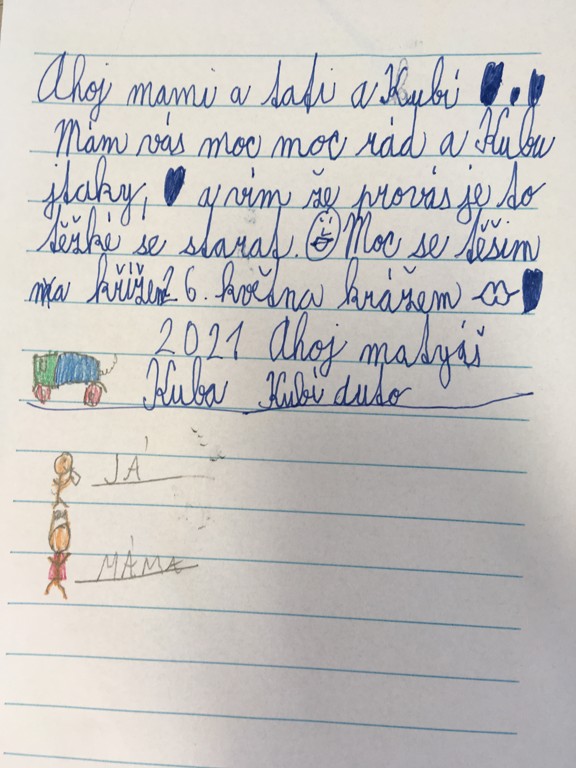 Ahoj mami a tati a Kubí
Mám vás moc moc rád a Kubu
jtaky, a vím že provás je to
těžké se starat. Moc se těším
na křížem 26. května krážem
2021 Ahoj matyáš
Kuba Kubí duto
JÁ
MÁMA